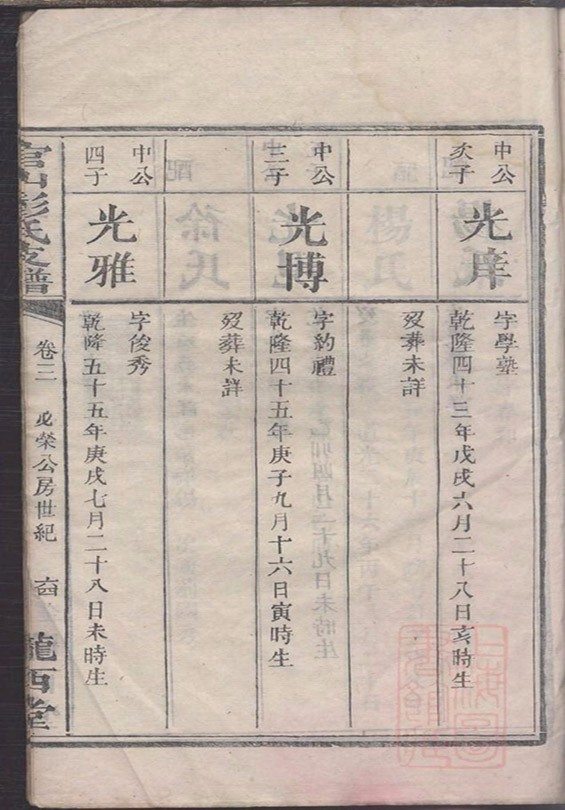 中公
次子
光庠
字學塾
乾隆四十三年戊戌六月二十八日亥時生
歿葬未詳
中公
三子
光博
字約禮
乾隆四十五年庚子九月十六日寅時生
歿葬未詳
中公
四子
光雅
字俊秀
乾隆五十五年庚戌七月二十八日未時生
官山彭氏支譜
卷三
榮公房世紀
龍西堂